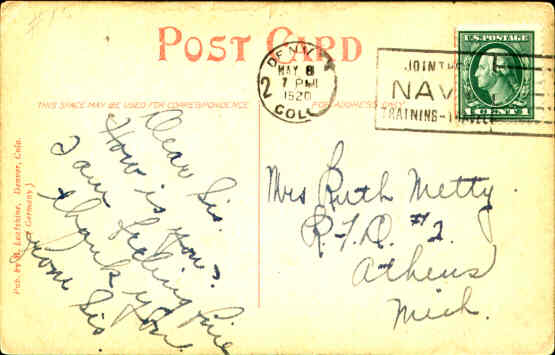 #15
POST CARD
DENVER
MAY 8
7 PM
1920
COLO
2
JOIN THE
NAVY
TRAINING-TRAVEL
U.S. POSTAGE
1 CENT 1
THIS SPACE MAY BE USED FOR CORRESPONDENCE
FOR ADDRESS ONLY
Dear Sis.
How is you?
I am feeling fine
thank you
from Sis.
Mrs Ruth Metty.
R.F.D. #2.
Athens
Mich.
Denver, Colo.
Germany)